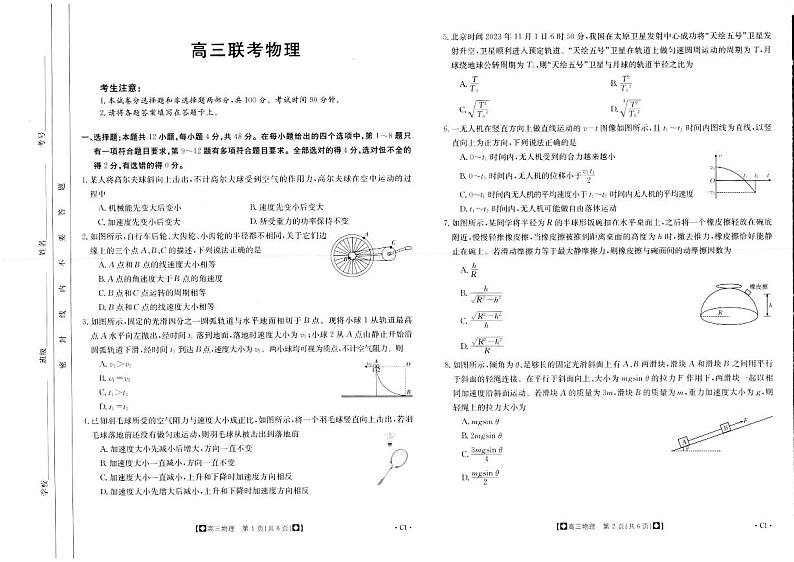 高三联考物理
考生注意：
1.本试卷分选择题和非选择题两部分，共100分。考试时间90分钟。
2.请将各题答案填写在答题卡上。
一、选择题：本题共12小题，每小题4分，共48分。在每小题给出的四个选项中，第1～8题只
有一项符合题目要求，第9～12题有多项符合题目要求。全部选对的得4分，选对但不全的
得2分，有选错的得0分。
1.某人将高尔夫球斜向上击出，不计高尔夫球受到空气的作用力，高尔夫球在空中运动的过
程中
A.机械能先变大后变小
B.速度先变小后变大
C.加速度先变小后变大
D.所受重力的功率保持不变
2.如图所示，自行车后轮、大齿轮、小齿轮的半径都不相同，关于它们边
缘上的三个点A、B、C的描述，下列说法正确的是
A.A点和B点的线速度大小相等
B.A点的角速度大于B点的角速度
C.B点和C点运转的周期相等
D.B点和C点的线速度大小相等
A
B
C
3.如图所示，固定的光滑四分之一圆弧轨道与水平地面相切于B点。现将小球1从轨道最高
点A水平向左抛出，经时间t₁落到地面，落地时速度大小为v₁；小球2从A点由静止开始沿
圆弧轨道下滑，经时间t₂到达B点，速度大小为v₂。两小球均可视为质点，不计空气阻力。则
A.v₁>v₂
B.v₁=v₂
C.t₁>t₂
D.t₁=t₂
A
O
B
4.已知羽毛球所受的空气阻力与速度大小成正比，如图所示，将一个羽毛球竖直向上击出，若羽
毛球落地前还没有做匀速运动，则羽毛球从被击出到落地前
A.加速度大小先减小后增大，方向一直不变
B.加速度大小一直减小，方向一直不变
C.加速度大小一直减小，上升和下降时加速度方向相反
D.加速度大小先增大后减小，上升和下降时加速度方向相反
【高三物理 第1页(共6页)】
·C1·
5.北京时间2023年11月1日6时50分，我国在太原卫星发射中心成功将“天绘五号”卫星发
射升空，卫星顺利进入预定轨道。“天绘五号”卫星在轨道上做匀速圆周运动的周期为T，月
球绕地球公转周期为T₀，则“天绘五号”卫星与月球的轨道半径之比为
A. T/T₀
B. T²/T₀²
C. √(T³/T₀³)
D. ∛(T²/T₀²)
6.一无人机在竖直方向上做直线运动的v-t图像如图所示，且t₁～t₂时间内图线为直线，以竖
直向上为正方向，下列说法正确的是
A.0～t₁时间内，无人机受到的合力越来越小
B.0～t₁时间内，无人机的位移小于v₁t₁/2
C.0～t₁时间内无人机的平均速度小于t₁～t₂时间内无人机的平均速度
D.t₁～t₂时间内，无人机可能做自由落体运动
7.如图所示，某同学将半径为R的半球形饭碗扣在水平桌面上，之后将一个橡皮擦轻放在碗底
附近，慢慢轻推橡皮擦，当橡皮擦被推到距离桌面的高度为h时，撤去推力，橡皮擦恰好能静
止在碗上。若滑动摩擦力等于最大静摩擦力，则橡皮擦与碗面间的动摩擦因数为
A. h/R
B. h/√(R²-h²)
C. √(R²-h²)/h
D. √(R²-h²)/R
橡皮擦
R
h
8.如图所示，倾角为θ、足够长的固定光滑斜面上有A、B两滑块，滑块A和滑块B之间用平行
于斜面的轻绳连接。在平行于斜面向上、大小为mgsin θ的拉力F作用下，两滑块一起以相
同加速度沿斜面运动。若滑块A的质量为3m，滑块B的质量为m，重力加速度大小为g，则
轻绳上的拉力大小为
A.mgsin θ
B.2mgsin θ
C. 3mgsin θ/4
D. mgsin θ/2
A
B
F
【高三物理 第2页(共6页)】
·C1·
学校
班级
姓名
考号
密封线内不要答题